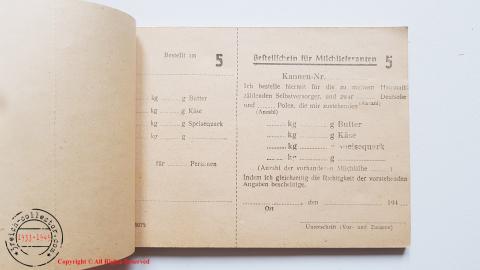 Bestellt am
5
kg g Butter
kg g Käse
kg g Speisequark
kg g
für Personen
Bestellschein für Milchlieferanten 5
Kannen-Nr.
Ich bestelle hiermit für die zu meinem Haushalt
zählenden Selbstversorger, und zwar Deutsche
(Anzahl)
und Polen, die mir zustehenden
(Anzahl)
kg g Butter
kg g Käse
kg g Speisequark
kg g
(Anzahl der vorhandenen Milchkühe )
Indem ich gleichzeitig die Richtigkeit der vorstehenden
Angaben bescheinige.
, den 194
Ort
Unterschrift (Vor- und Zuname)
3reich-collector.com
1933-1945
Copyright © All Rights Reserved